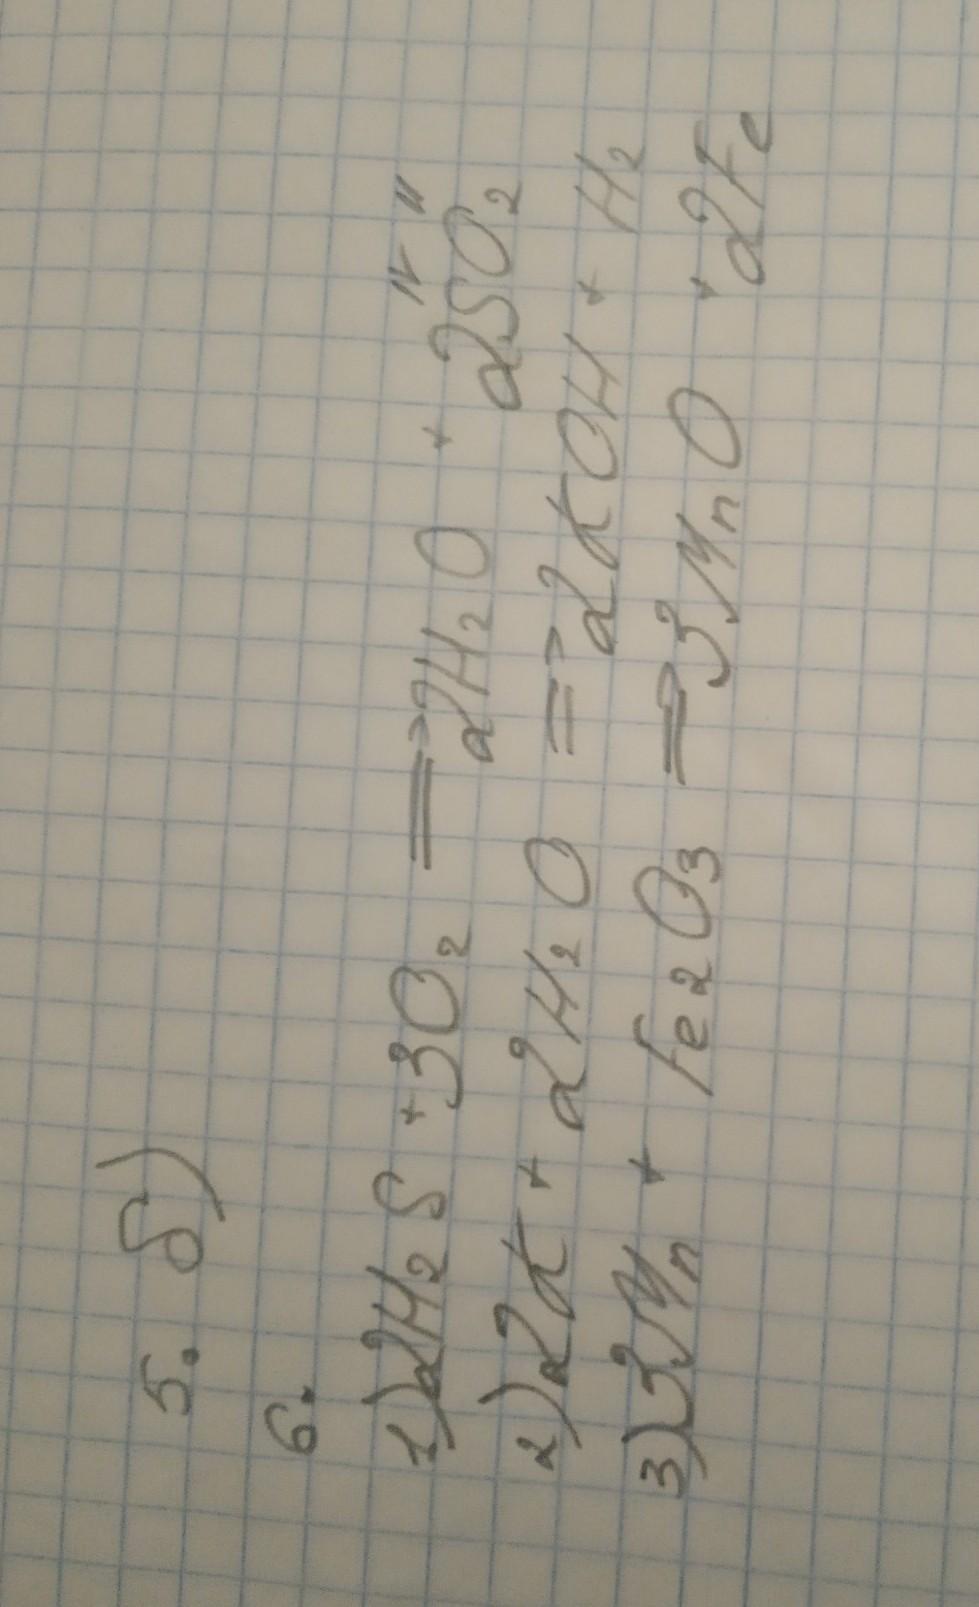 5. б)
6.
1) 2H₂S + 3O₂ => 2H₂O + 2SO₂
2) 2K + 2H₂O => 2KOH + H₂
3) 3Mn + Fe₂O₃ => 3MnO + 2Fe